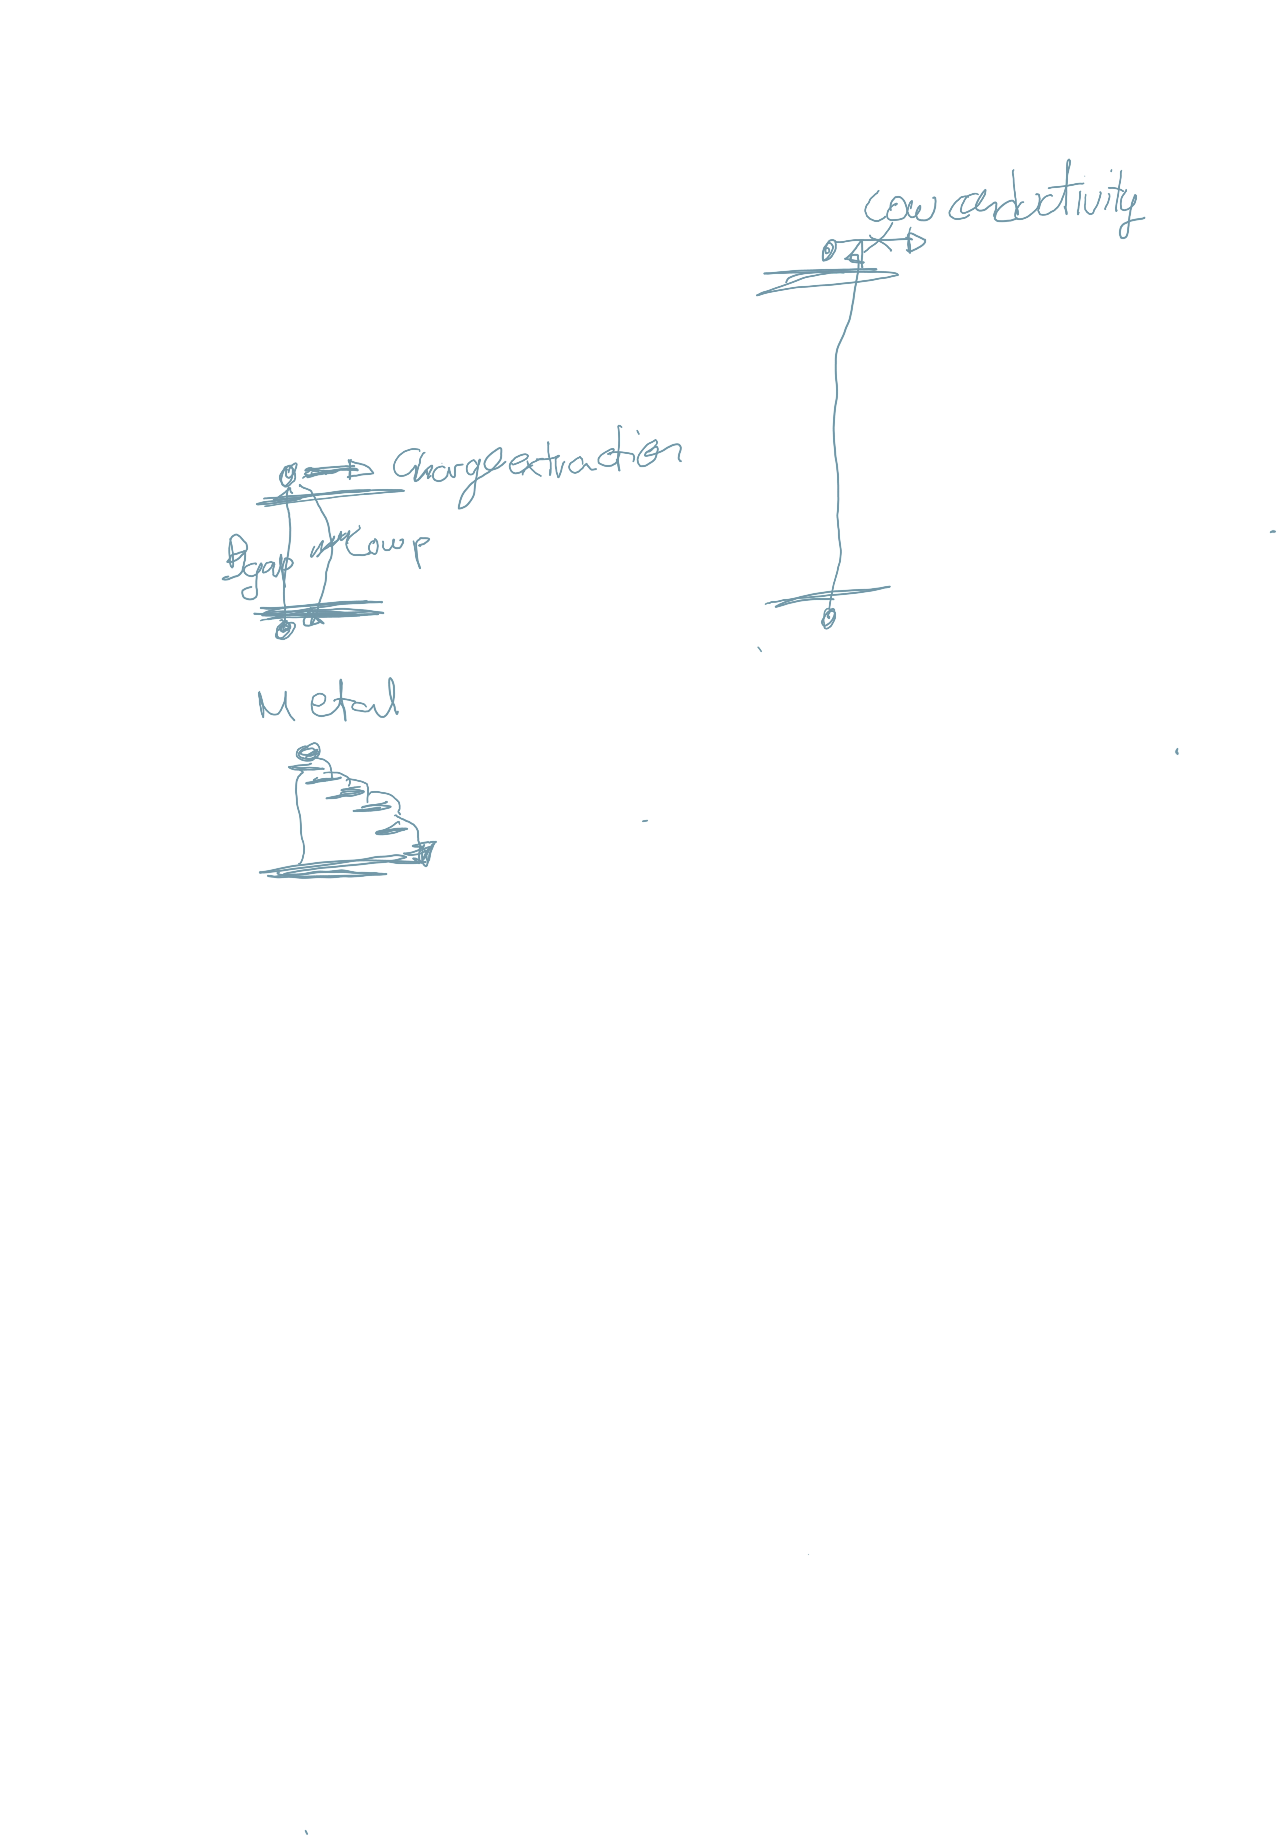 Low conductivity
Charge extraction
Bgap
Low p
Metal